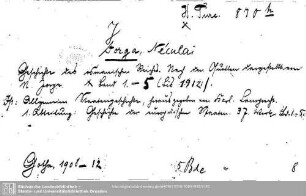 H. Turc. 870 h
X
Jorga, Neculai
Geschichte des osmanischen Reichs. Nach den Quellen dargestellt von
N. Jorga. Band 1.-5 (bis 1912).
Allgemeine Staatengeschichte, herausgegeben von Karl Lamprecht.
1. Abteilung: Geschichte der europäischen Staaten. 37. Werk. Bd. 1-5.
Gotha, 1908-12 5 Bde 8